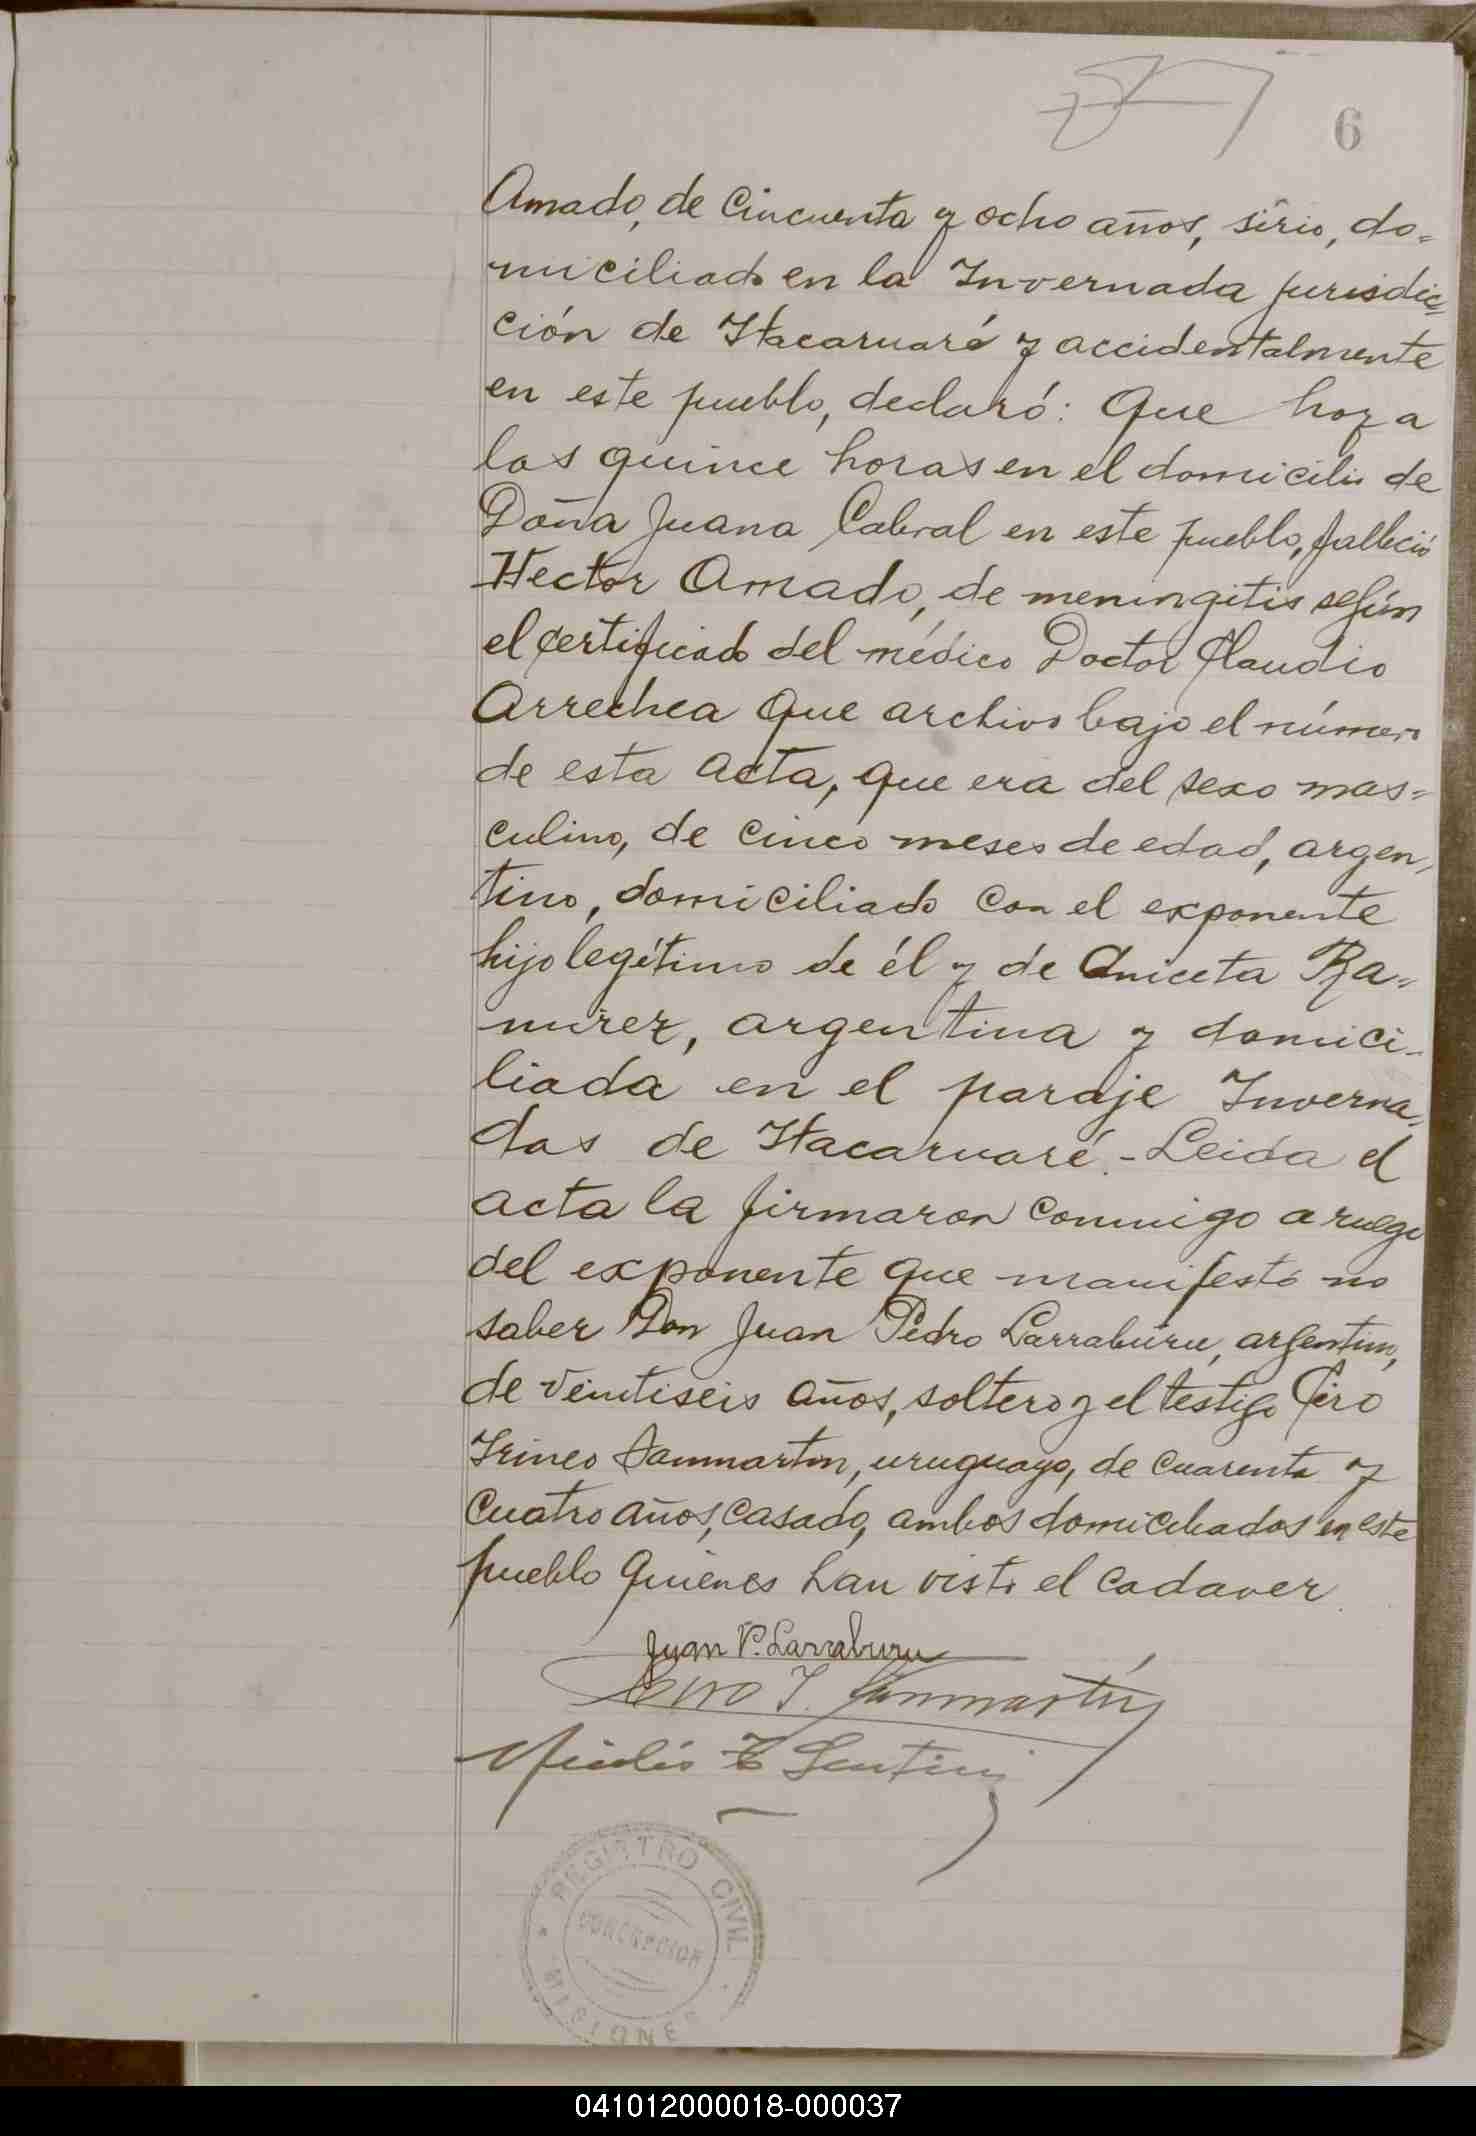 6
Amado, de cincuenta y ocho años, sirio, do=
miciliado en la Invernada jurisdic=
ción de Itacaruaré y accidentalmente
en este pueblo, declaró: Que hoy a
las quince horas en el domicilio de
Doña Juana Cabral en este pueblo, falleció
Hector Amado, de meningitis según
el certificado del médico Doctor Claudio
Arrechea que archivo bajo el número
de esta acta, que era del sexo mas=
culino, de cinco meses de edad, argen,
tino, domiciliado con el exponente
hijo legítimo de él y de Aniceta Ra=
mirez, argentina y domici-
liada en el paraje Inverna,
das de Itacaruaré.- Leida el
acta la firmaron conmigo a ruego
del exponente que manifestó no
saber Don Juan Pedro Larraburu, argentino,
de veintiseis años, soltero y el testigo Ciro
Irineo Sanmartin, uruguayo, de cuarenta y
cuatro años, casado, ambos domiciliados en este
pueblo quienes han visto el cadaver.
Juan P. Larraburu
Ciro I. Sanmartín
REGISTRO CIVIL
CONCEPCION
MISIONES
041012000018-000037